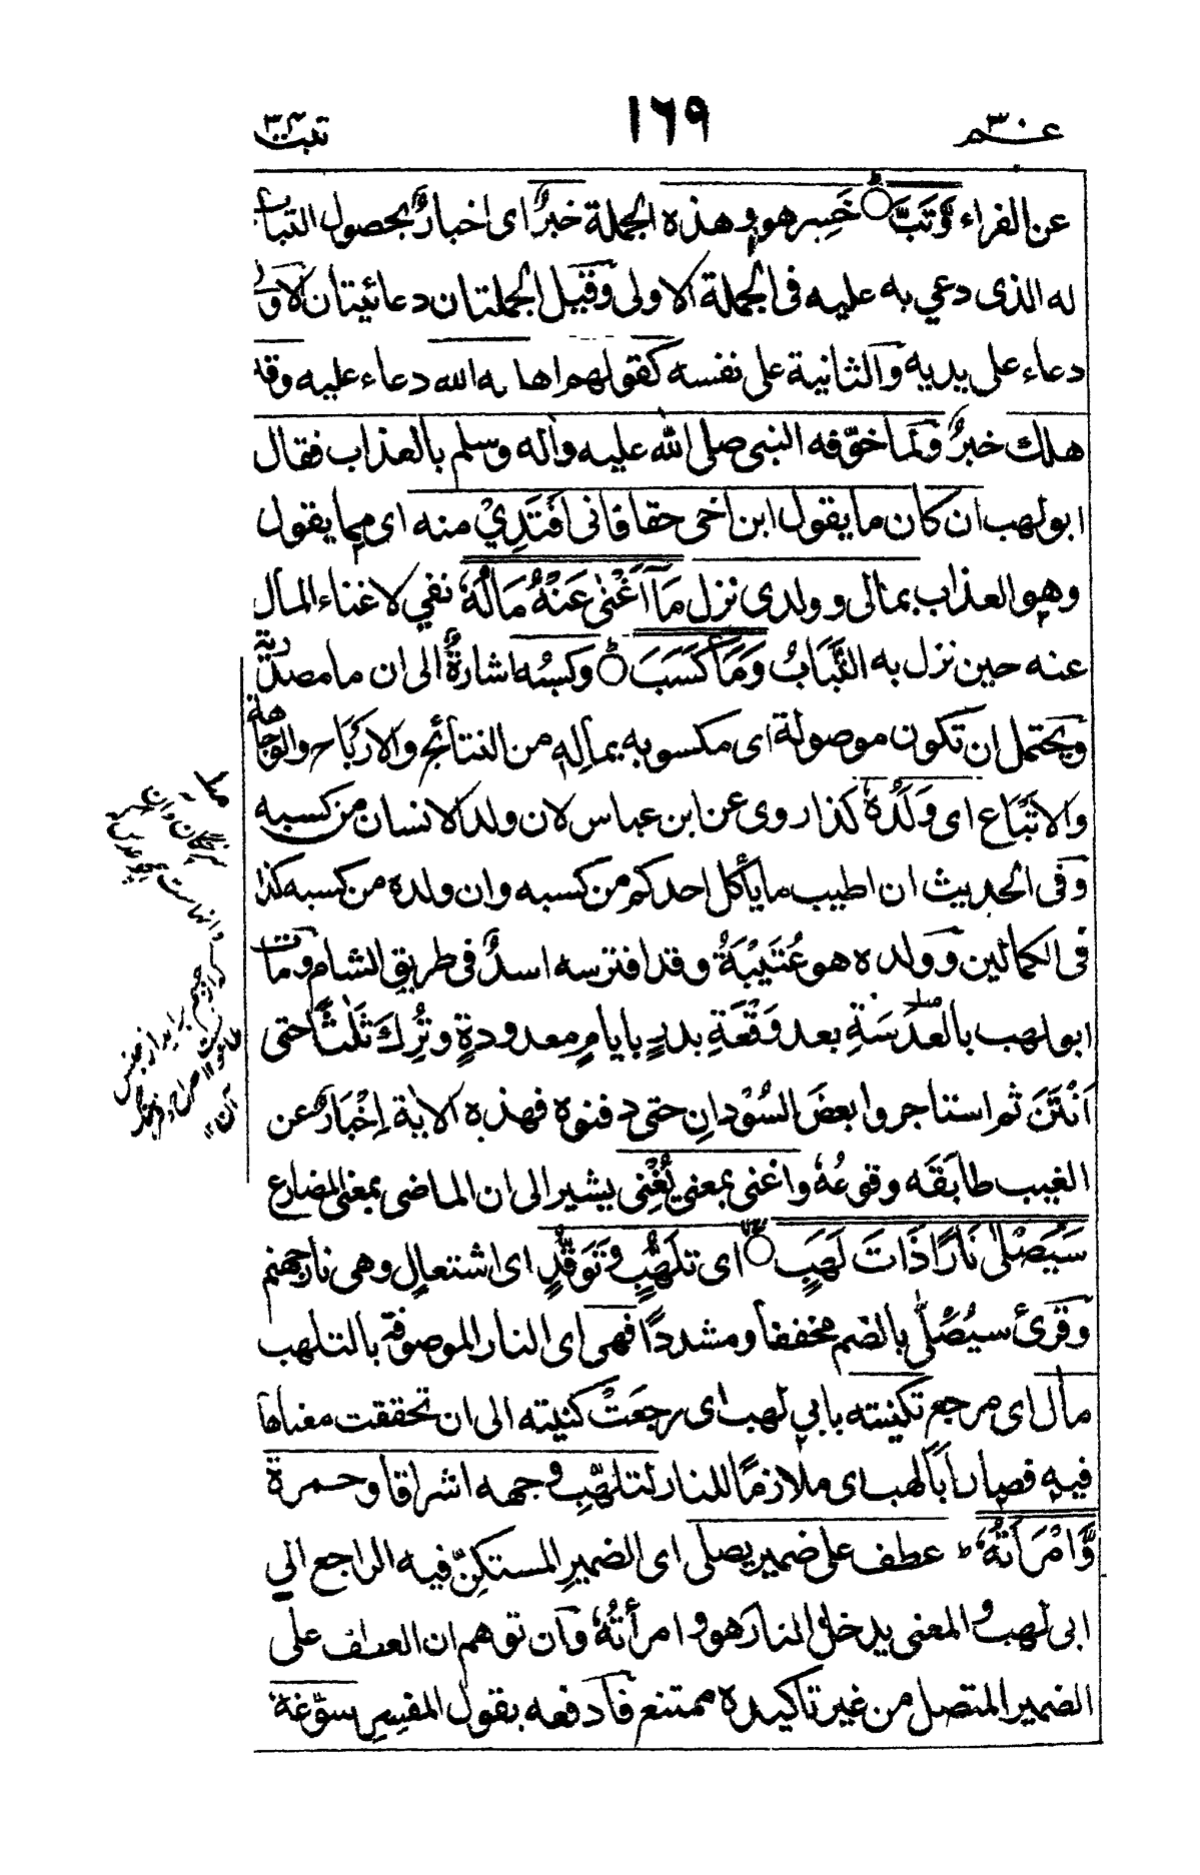 عم ٣٠
١٦٩
تبت
عن الفراء وَّتَبَّ خَسِر هو وهذه الجملة خبرٌ اى اخبارٌ بحصول التباب
له الذى دعي به عليه فى الجملة الاولى وقيل الجملتان دعائيتان الاولى
دعاء على يديه والثانية على نفسه كقولهم اهلكه الله دعاء عليه وقد
هلك خبرٌ ولما خوّفه النبى صلى الله عليه واله وسلم بالعذاب فقال
ابولهب ان كان ما يقول ابن اخى حقا فانى افْتَدِيْ منه اى مما يقول
وهو العذاب بمالى وولدى نزل مَآ اَغْنٰى عَنْهُ مَالُهٗ نفي لاغناء المال
عنه حين نزل به التَّبَابُ وَمَا كَسَبَ وكسبُه اشارةٌ الى ان ما مصدرية
ويحتمل ان تكون موصولة اى مكسوبه بمالِه من النتائج والارْبَاح والوجاهة
والاتْبَاع اى وَلَدُهٗ كذا روى عن ابن عباس لان ولد الانسان من كسبه
وفى الحديث ان اطيب ما يأكل احدكم من كسبه وان ولده من كسبه كذا
فى الكمالين وولده هو عُتَيْبَةُ وقد افترسه اسدٌ فى طريق الشام ومات
ابولهب بالعَدَسَةِ بعد وَقْعَةِ بدرٍ بايامٍ معدودةٍ وتُرِكَ ثَلٰثًا حتى
اَنْتَنَ ثم استاجروا بعضَ السُوْدانِ حتى دفنوه فهذه الاية اِخْبَارٌ عن
الغيب طابَقَه وقوعُهٗ واغنى بمعنى يُغْنِى يشير الى ان الماضى بمعنى المضارع
سَيَصْلٰى نَارًا ذَاتَ لَهَبٍ اى تلَهُّبٍ وتَوَقُّدٍ اى اشتعالٍ وهى نار جهنم
وقرئ سيُصْلٰى بالضم مخففا ومشددًا فهى اى النار الموصوفة بالتلهب
مآل اى مرجع تكنيته بابي لهب اى رجعَتْ كنيته الى ان تحققت معناها
فيه فصار اَبَا لهب اى ملازمًا للنار لتلهّبِ وجهه اشراقا وحمرة
وَّامْرَاَتُهٗ ط عطف على ضمير يصلى اى الضميرِ المستكِنّ فيه الراجع الي
ابى لهب والمعنى يدخل النار هو وامرأتُهٗ وان توهم ان العطف على
الضمير المتصل من غير تاكيده ممتنع فادفعه بقول المفسِرِ سوّغه